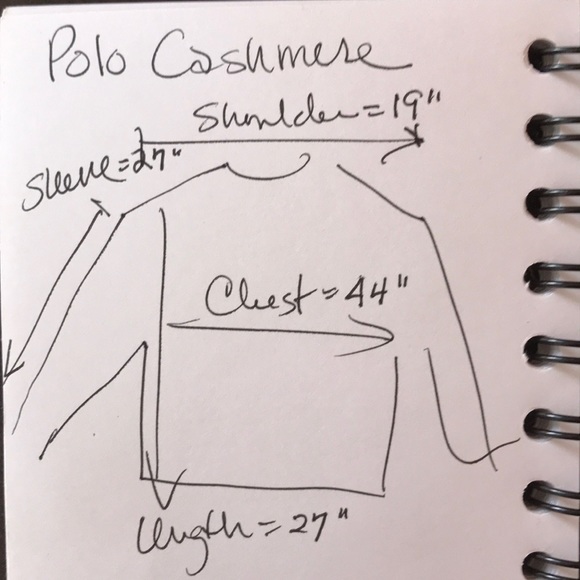 Polo Cashmere
Shoulder = 19"
Sleeve = 27"
Chest = 44"
length = 27"